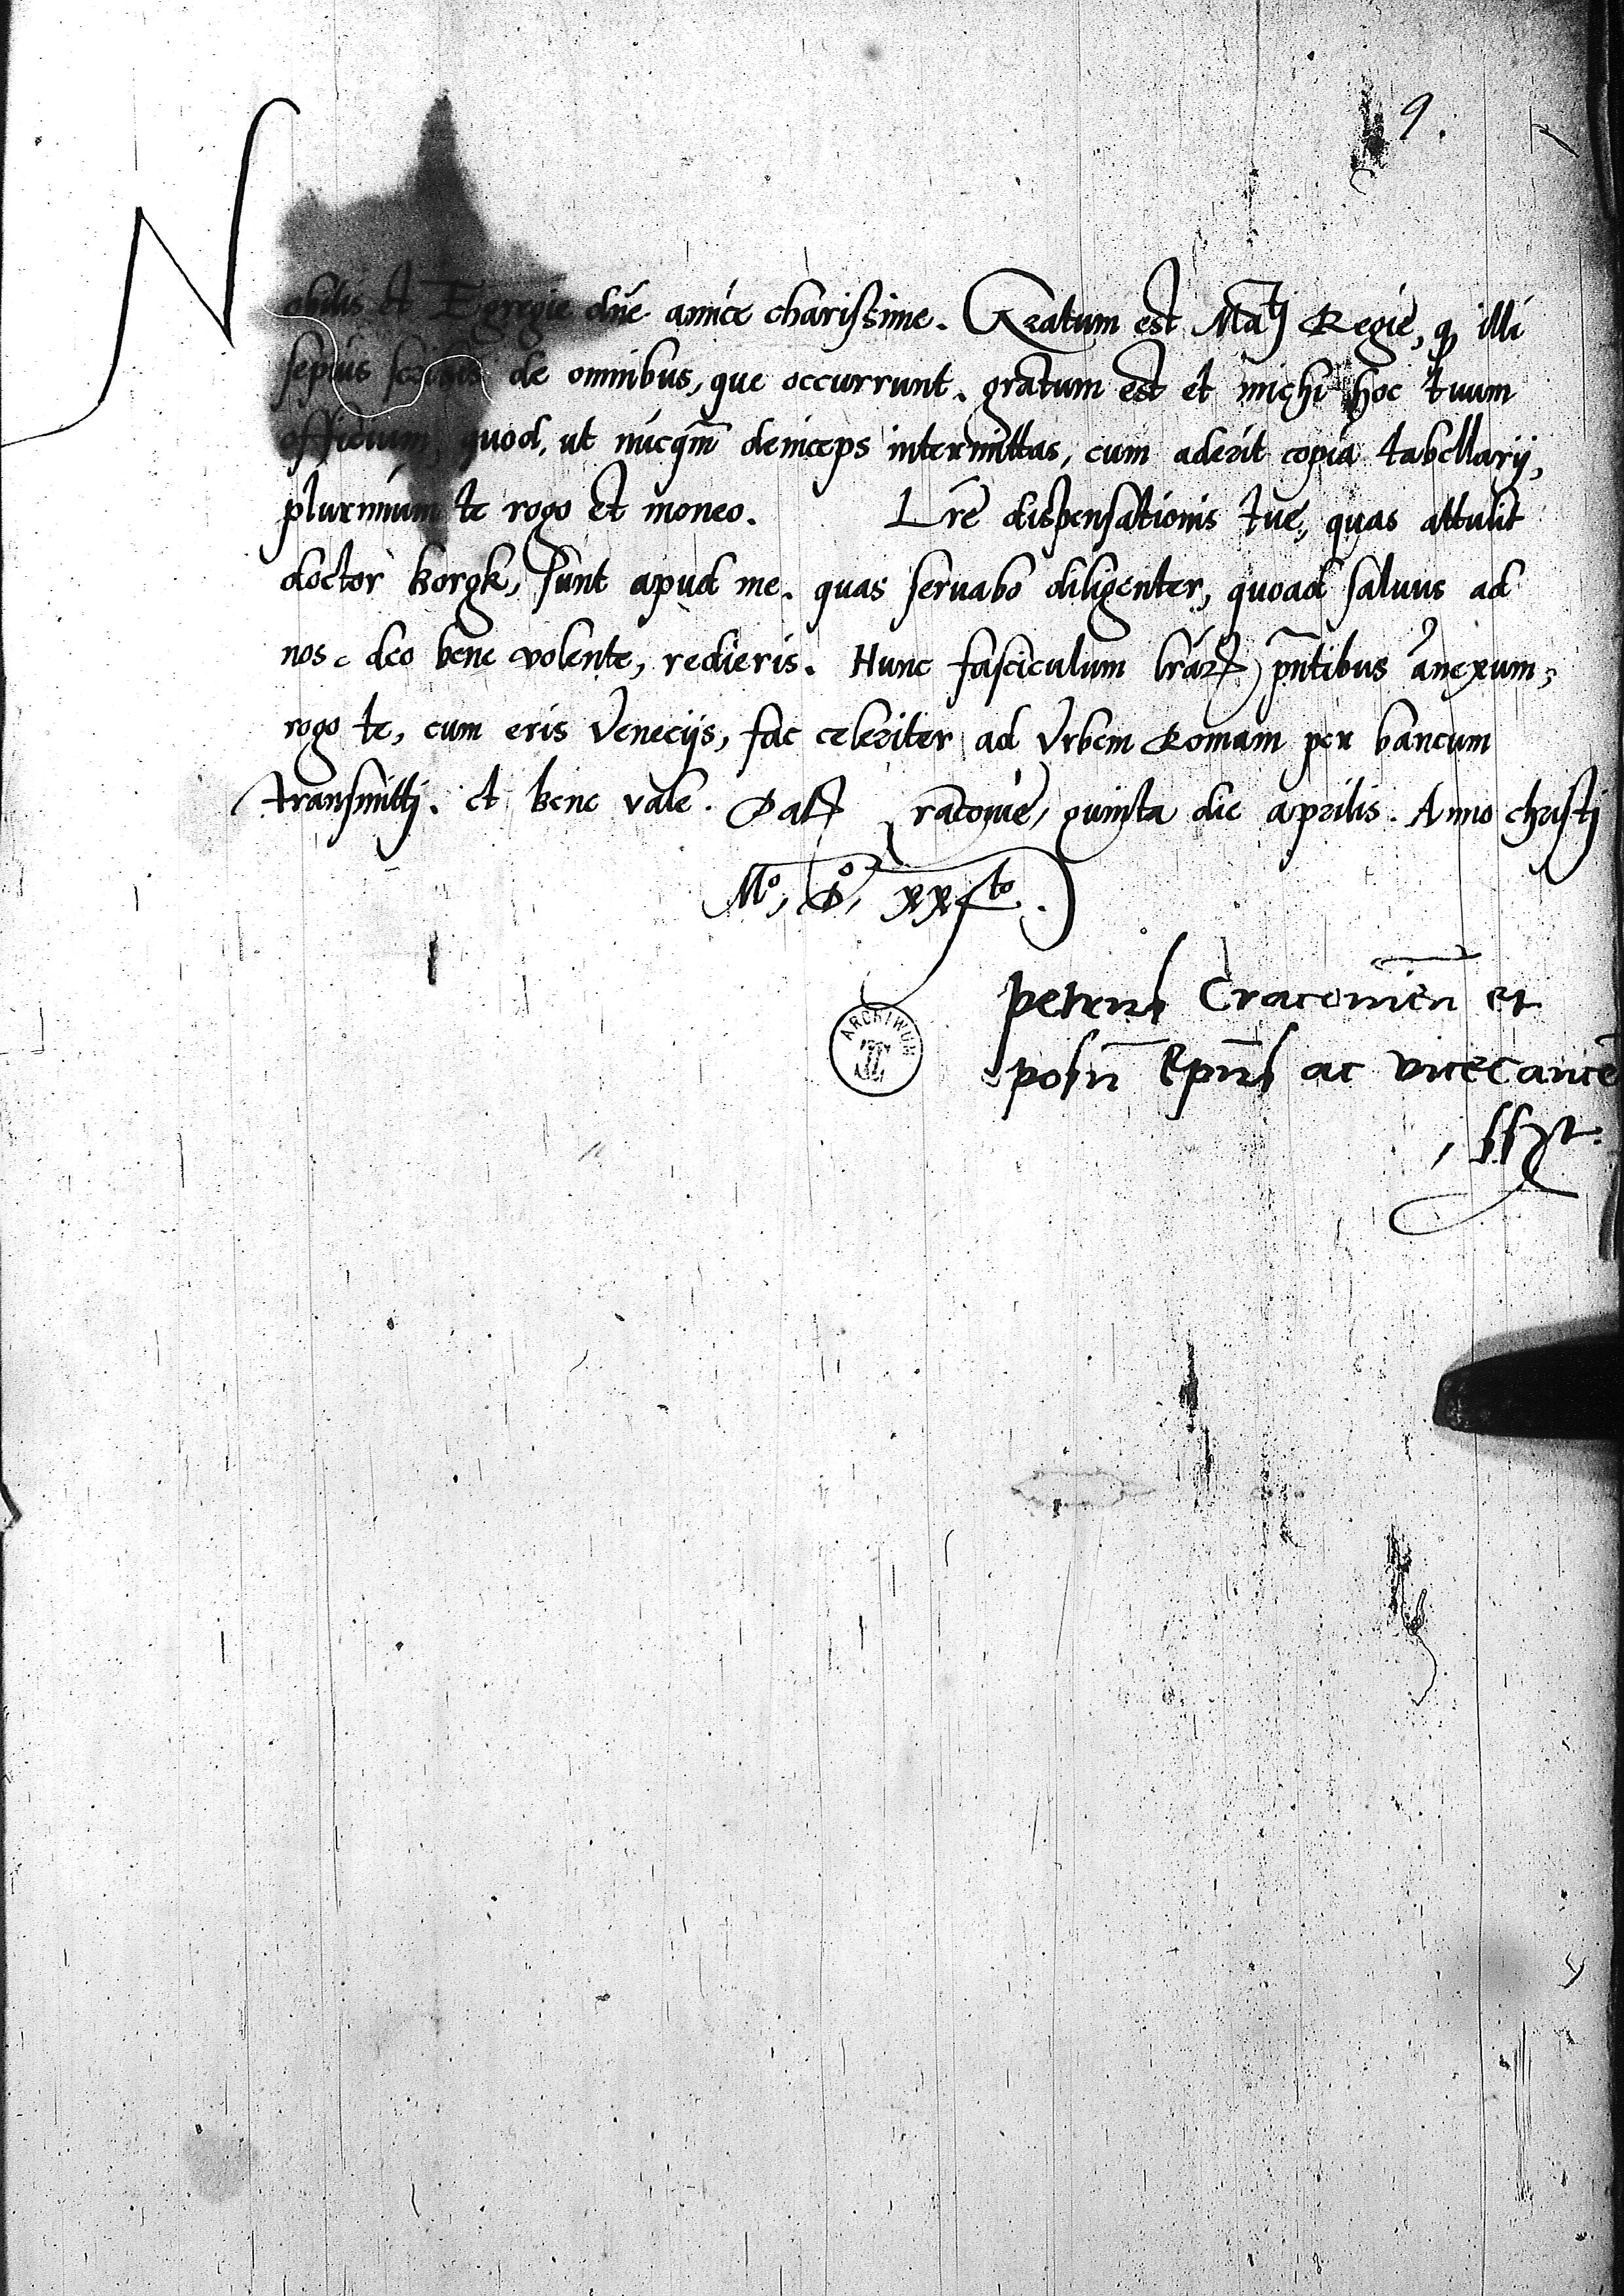 9.
Nobilis et Egregie dñe amice charissime. Gratum est Ma^tj Regie, q illi
sepius scribis de omnibus, que occurrunt. gratum est et michi hoc tuum
officium, quod, ut nũcq̃m deinceps intermittas, cum aderit copia tabellarij,
plurimum te rogo et moneo. Lr̃e dispensationis tue, quas attulit
doctor korgk, sunt apud me. quas seruabo diligenter, quoad saluus ad
nos deo bene volente, redieris. Hunc fasciculum lr̃arꝝ pñtibus ꝯnexum,
rogo te, cum eris Venecijs, fac celeriter ad Vrbem Romam per bancum
transmittj. et bene vale. Datꝝ Cracovie, quinta die aprilis. Anno christj
M°, D°, xx
petrus Cracovieñ et
posñ Ep̃us ac viceCancẽ
ARCHIWUM
sszt.